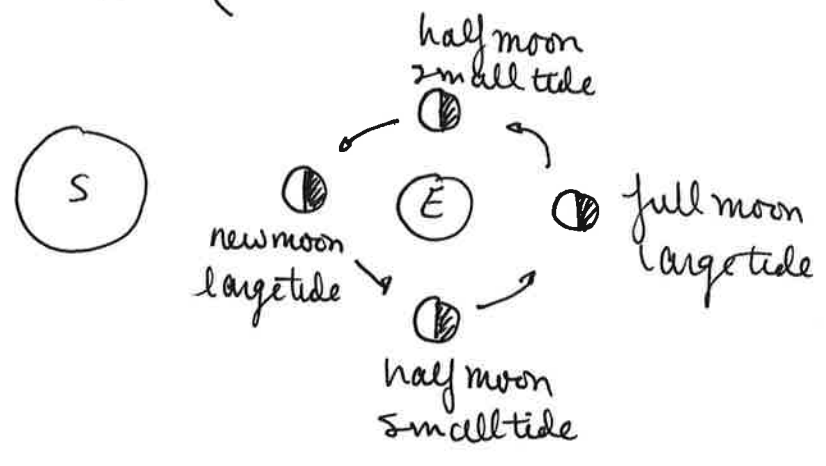 half moon
small tide
S
E
new moon
large tide
full moon
large tide
half moon
small tide